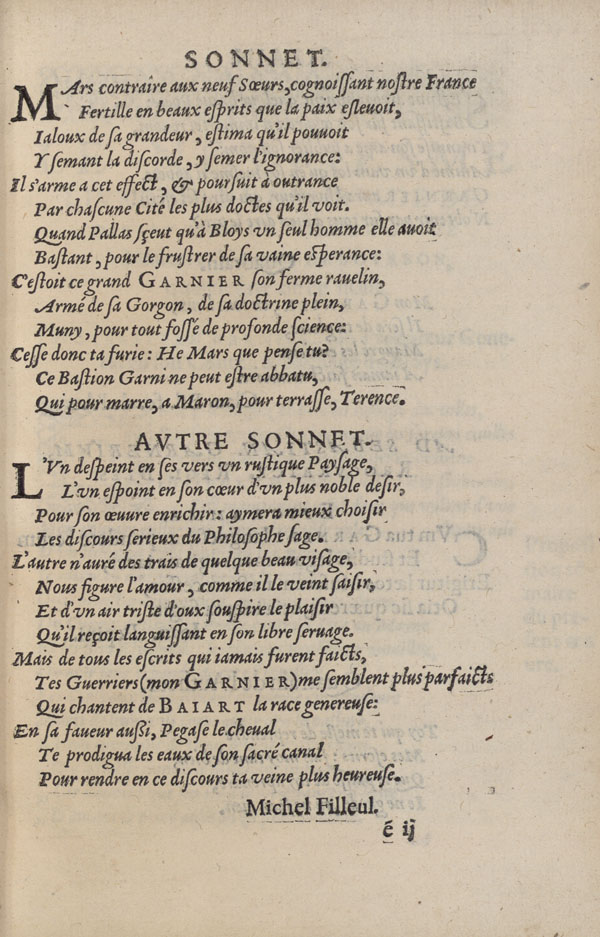 SONNET.
MArs contraire aux neuf Sœurs, cognoiſſant noſtre France
Fertille en beaux eſprits que la paix eſleuoit,
Ialoux de ſa grandeur, eſtima qu'il pouuoit
Y ſemant la diſcorde, y ſemer l'ignorance:
Il s'arme a cet effect, & pourſuit à outrance
Par chaſcune Cité les plus doctes qu'il voit.
Quand Pallas ſçeut qu'à Bloys vn ſeul homme elle auoit
Baſtant, pour le fruſtrer de ſa vaine eſperance:
C'eſtoit ce grand GARNIER ſon ferme rauelin,
Armé de ſa Gorgon, de ſa doctrine plein,
Muny, pour tout foſſé de profonde ſcience:
Ceſſe donc ta furie: He Mars que penſe tu?
Ce Baſtion Garni ne peut eſtre abbatu,
Qui pour marre, a Maron, pour terraſſe, Terence.
AVTRE SONNET.
L'Vn deſpeint en ſes vers vn ruſtique Payſage,
L'vn eſpoint en ſon cœur d'vn plus noble deſir,
Pour ſon œuure enrichir: aymera mieux choiſir
Les diſcours ſerieux du Philoſophe ſage.
L'autre n'auré des trais de quelque beau viſage,
Nous figure l'amour, comme il le veint ſaiſir,
Et d'vn air triſte d'oux ſouſpire le plaiſir
Qu'il reçoit languiſſant en ſon libre ſeruage.
Mais de tous les eſcrits qui iamais furent faicts,
Tes Guerriers (mon GARNIER) me ſemblent plus parfaicts
Qui chantent de BAIART la race genereuſe:
En ſa faueur auſſi, Pegaſe le cheual
Te prodigua les eaux de ſon ſacré canal
Pour rendre en ce diſcours ta veine plus heureuſe.
Michel Filleul.
é ij